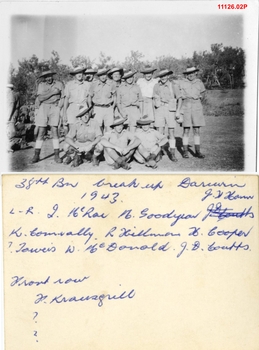 11126.02P
38th Bn break up Darwin
1943. J. Ham
L-R. I. McRae N. Goodyear
K. Connally. R Hillman H. Cooper
? Towers W. McDonald. J.D. Coutts.
Front row
H. Krausgrill
?
?
?